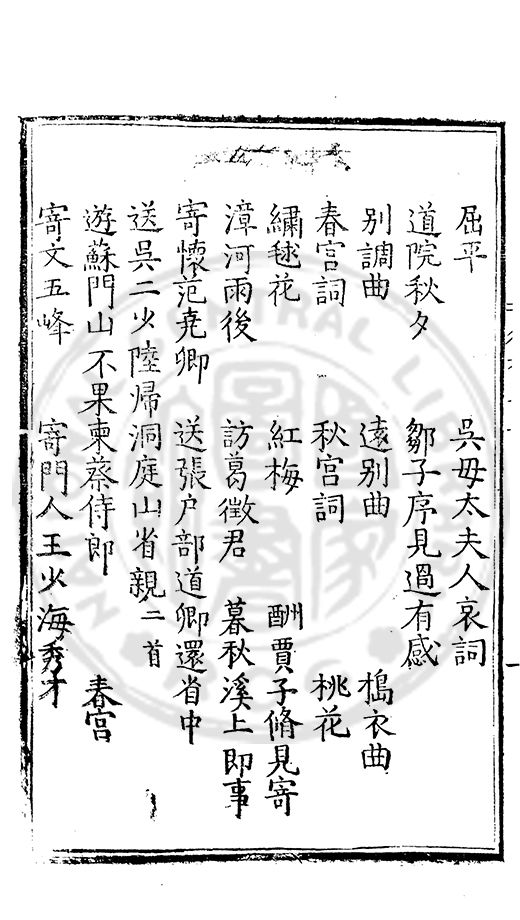 屈平 吳母太夫人哀詞
道院秋夕 鄒子序見過有感
別調曲 遠別曲 搗衣曲
春宮詞 秋宮詞 桃花
繡毬花 紅梅 酬賈子脩見寄
漳河雨後 訪葛徵君 暮秋溪上即事
寄懷范堯卿 送張户部道卿還省中
送吳二少陸歸洞庭山省親二首
遊蘇門山不果柬蔡侍郎 春宮
寄文五峰 寄門人王少海秀才